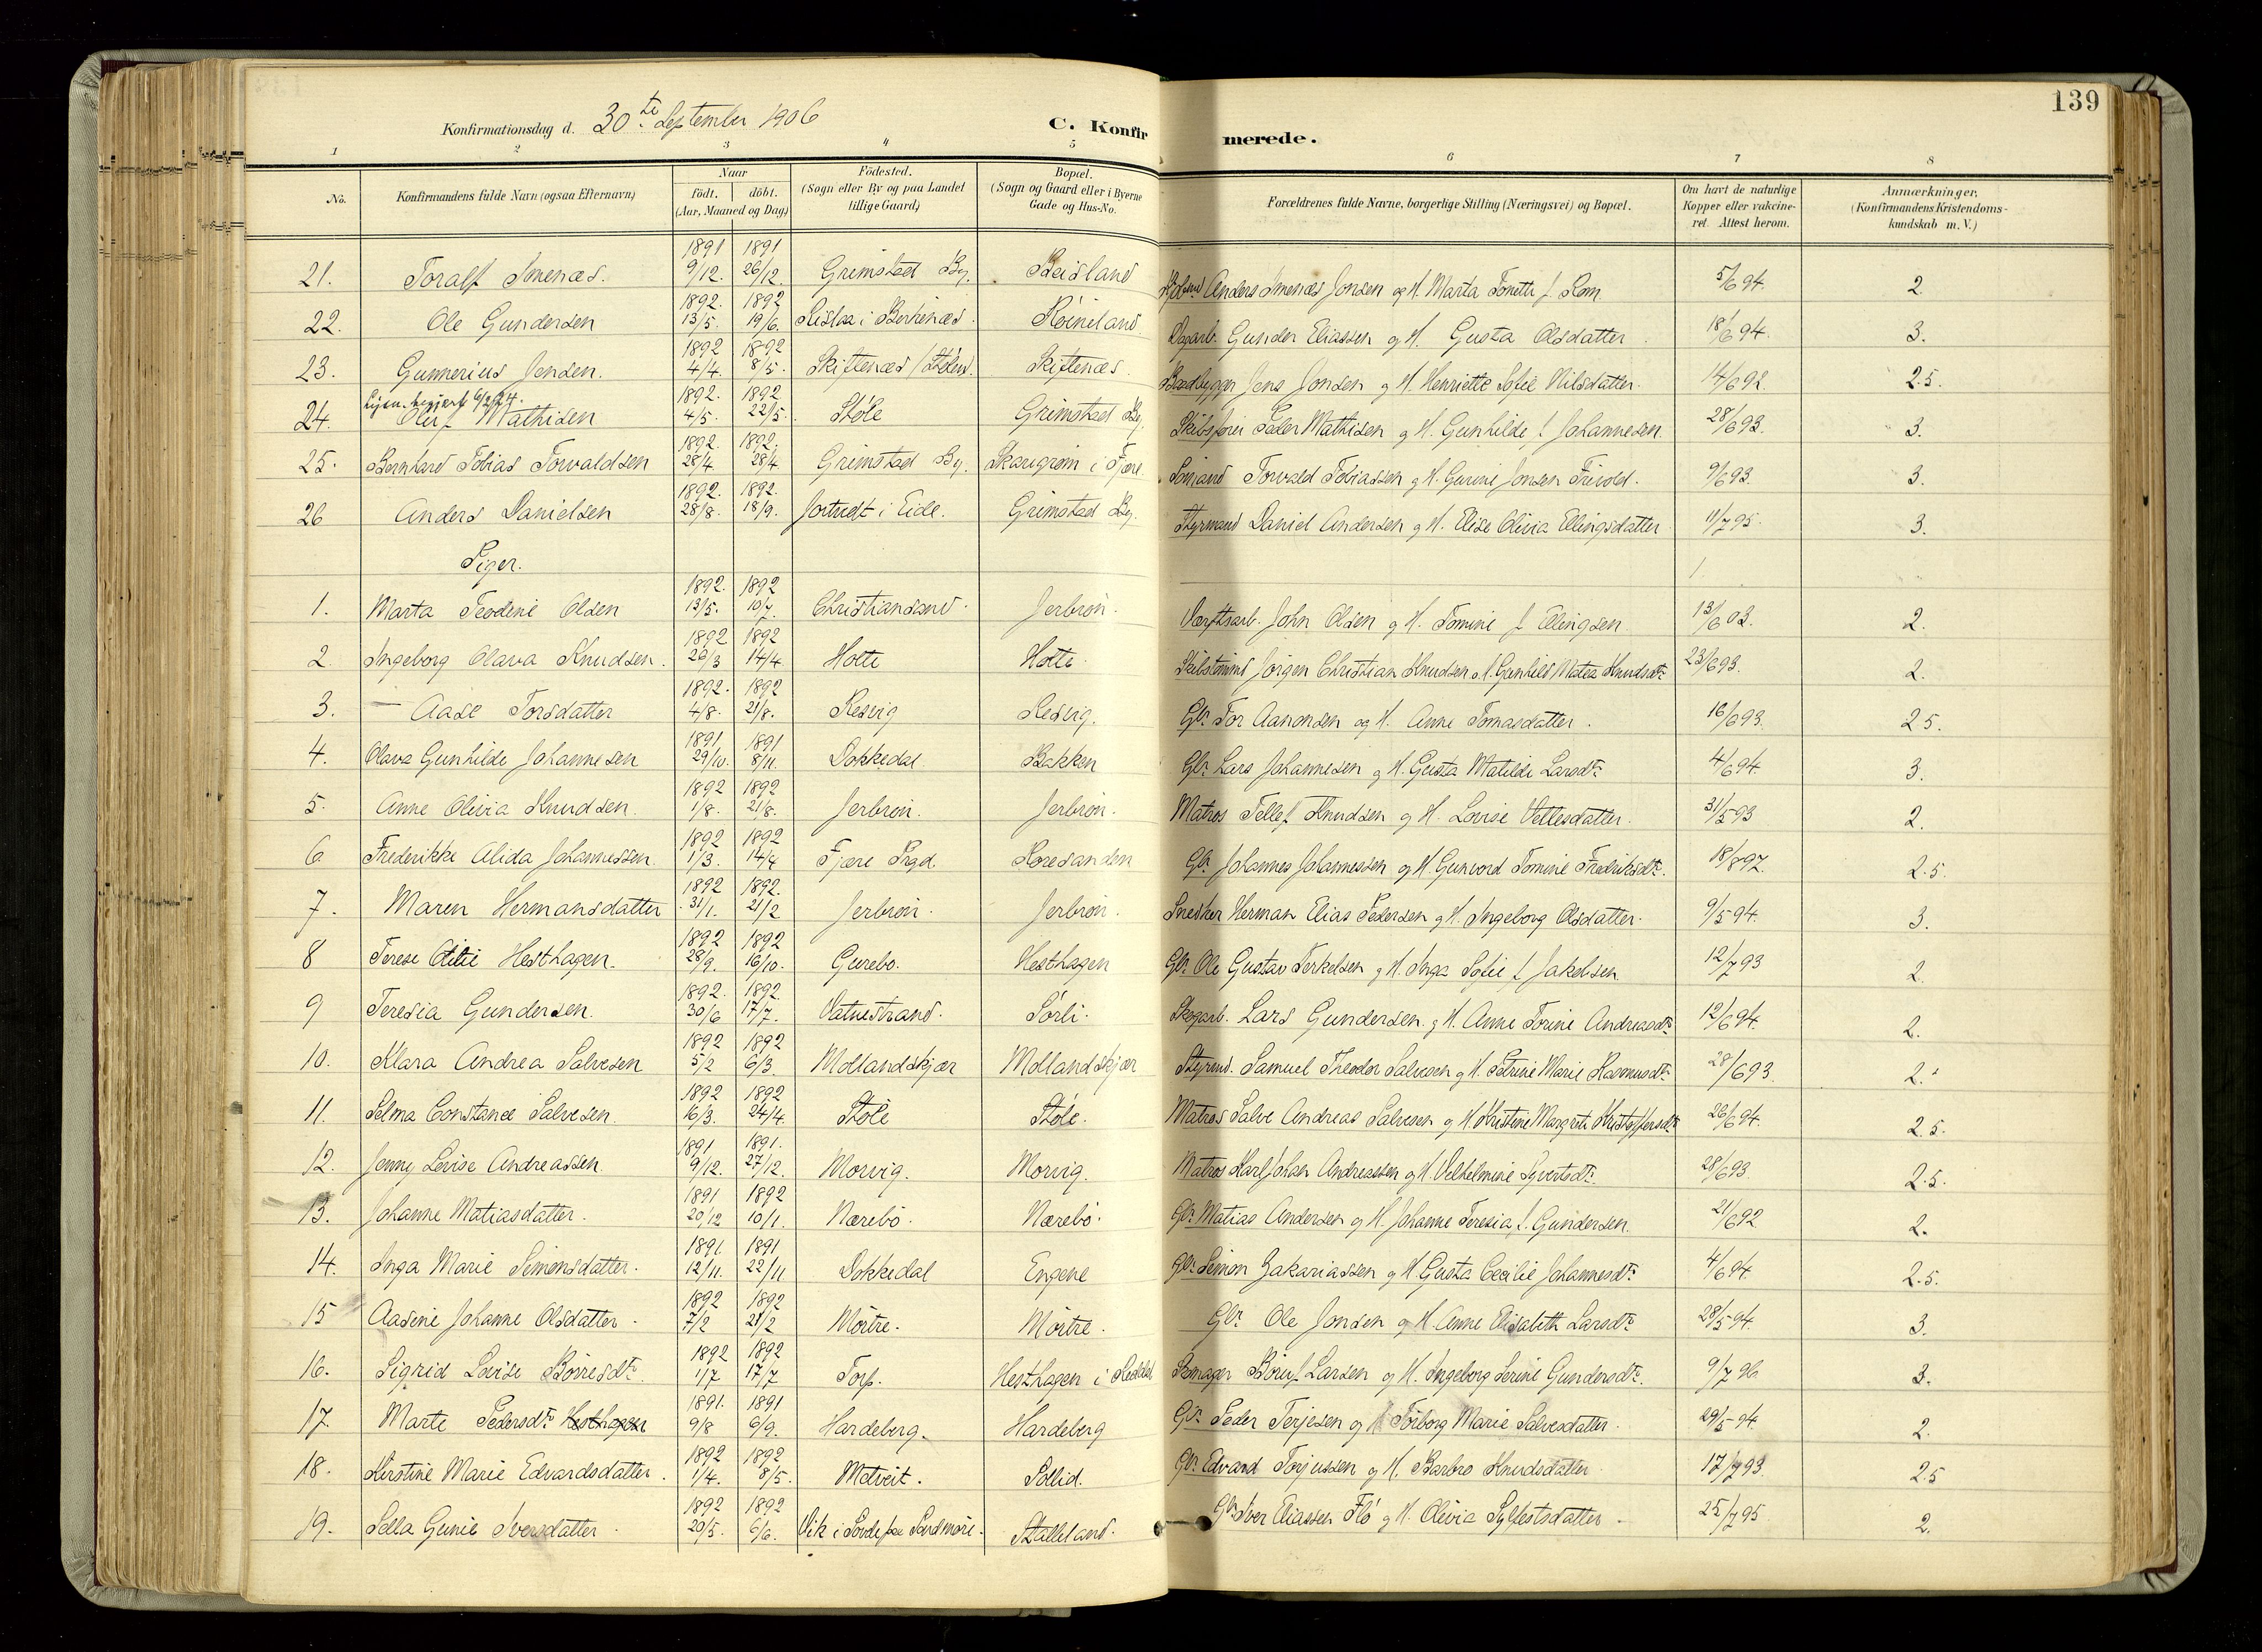 139
Konfirmationsdag d. 30te September 1906
C. Konfirmerede.
1 2 3 4 5 6 7 8
No. Konfirmandens fulde Navn (ogsaa Efternavn) Naar födt. döbt. (Aar, Maaned og Dag) Födested. (Sogn eller By og paa Landet tillige Gaard) Bopæl. (Sogn og Gaard eller i Byerne Gade og Hus-No. Forældrenes fulde Navne, borgerlige Stilling (Næringsvei) og Bopæl. Om havt de naturlige Kopper eller vakcineret. Attest herom. Anmærkninger. (Konfirmandens Kristendomskundskab m. V.)
21. Toralf Smenæs. 1891 9/12. 1891 26/12. Grimstad By. Beisland Anders Smenæs Jonsen og H. Marta Tonette f. Rom 5/6 94. 2.
22. Ole Gundersen 1892. 13/5. 1892 19/6. i Birkenæs. Röineland Dagarb. Gunder Eliassen og H. Gusta Olsdatter 18/6 94. 3.
23. Gunnerius Jensen. 1892 4/4. 1892 8/5. Skiftenæs / Skiftenæs. Baadbygger Jens Jonsen og H. Henriette Sofie Nilsdatter. 14/6 92. 2.5.
24. Oluf Mathisen 1892. 4/5. 1892 22/5. Stöle Grimstad By. Skibsförer Peder Mathisen og H. Gunhilde f. Johannesen 28/6 93. 3.
25. Bernhard Tobias Torvaldsen 1892. 28/4 1892. 28/4 Grimstad By. Skaregrøm i Fjære Sömand Torvald Tobiassen og H. Gurine Jonsen Frivold. 9/6 93. 3.
26 Anders Danielsen 1892. 28/8. 1892. 18/9. Jortveit i Eide. Grimstad By. Styrmand Daniel Andersen og H. Elise Olivia Ellingsdatter 11/7 95. 3.
Piger.
1. Marta Teodine Olsen 1892. 13/5. 1892 10/7. Christiansand. Jerbrøn. Værftsarb. John Olsen og H. Tomine f. Ellingsen 13/6 03. 2.
2. Ingeborg Olava Knudsen. 1892 26/3 1892 14/4 Holte Holte. Skibstömmd Jörgen Christian Knudsen o. H. Gunhild Matea Knudsdtr 23/6 93. 2.
3. — Aase Torsdatter 1892. 4/8. 1892 21/8. Resvig Resvig. Gbr. Tor Aanonsen og H. Anne Tomasdatter. 16/6 93. 2.5.
4. Olava Gunhilde Johannesen 1891 29/10. 1891 8/11. Dokkedal Bakken Gbr. Lars Johannesen og H. Gusta Matilde Larsdtr 4/6 94. 3.
5. Anne Olivia Knudsen. 1892 1/8. 1892 21/8. Jerbrøn. Jerbrøn. Matros Tellef Knudsen og H. Lovise Vetlesdatter. 31/5 93 2.
6 Frederikke Alida Johannessen. 1892 1/3. 1892 14/4 Fjære Prgd. Roresanden Gbr. Johannes Johannessen og H. Gunvord Tomine Fredriksdtr. 18/8 97. 2.5.
7. Maren Hermansdatter 1892 31/1. 1892. 21/2 Jerbrøn. Jerbrøn. Snedker Herman Elias Pedersen og H. Ingeborg Olsdatter. 9/5 94. 3.
8 Terese Otilie Hesthagen. 1892 28/9. 1892 16/10. Gurebo. Hesthagen Gbr. Ole Gustav Terkelsen og H. Inga Sofie f. Jakobsen. 12/7 93 2.
9 Teresia Gundersen. 1892. 30/6 1892. 17/7. Vatnestrand. Sörli. Skogarb. Lars Gundersen og H. Anne Torine Andreasdtr 12/6 94. 2.
10. Klara Andrea Salvesen 1892 5/2 1892 6/3. Mollandskjær Mollandskjær Styrmd. Samuel Theodor Salvesen og H. Petrine Marie Rasmusdtr 28/6 93. 2.
11. Selma Constance Salvesen. 1892 16/3. 1892 24/4. Stöle Stöle. Matros Salve Andreas Salvesen og H. Kristine Margrete Kristoffersdtr 26/6 94. 2.5.
12. Jenny Lovise Andreassen. 1891 9/12. 1891. 27/12. Morvig. Morvig. Matros Karl Johan Andreassen og H. Vilhelmine Syvertsdtr. 28/6 93. 2.5.
13. Johanne Matiasdatter. 1891 20/12 1892 10/1. Nærebö. Nærebö. Gbr. Matias Andersen og H. Johanne Teresia f. Gundersen. 21/6 92 2.
14. Inga Marie Simonsdatter. 1891. 12/11. 1891 22/11. Dokkedal Engene Gbr. Simon Zakariassen og H. Gusta Cecilie Johannesdtr 4/6 94. 2.5.
15 Aasine Johanne Olsdatter. 1892 7/2 1892 21/2 Mörtre. Mörtre. Gbr. Ole Jonsen og H. Anne Elisabeth Larsdtr 28/5 94. 3.
16. Sigrid Lovise Börresdtr. 1892 1/7 1892 17/7 Torp. Hesthagen i Skomager Börre Larsen og H. Ingeborg Serine Gundersdtr. 9/7 96 3.
17. Marte Pedersdtr Hesthagen 1891. 9/8 1891 6/9. Hardeberg. Hardeberg Gbr. Peder Terjesen og H. Torborg Marie Salvesdatter. 29/5 94. 2.
18. Kirstine Marie Edvardsdatter. 1892 1/4. 1892 8/5. Metveit. Sollid. Gbr. Edvard Torjussen og H. Barbro Knudsdatter 17/7 93. 2.5
19. Sella Gunie Iversdatter. 1892 20/5. 1892 6/6. Vik i paa Söndmöre. Stalleland. Gbr. Iver Eliassen Flö og H. Olivia Sylfestsdatter. 25/7 95. 2.